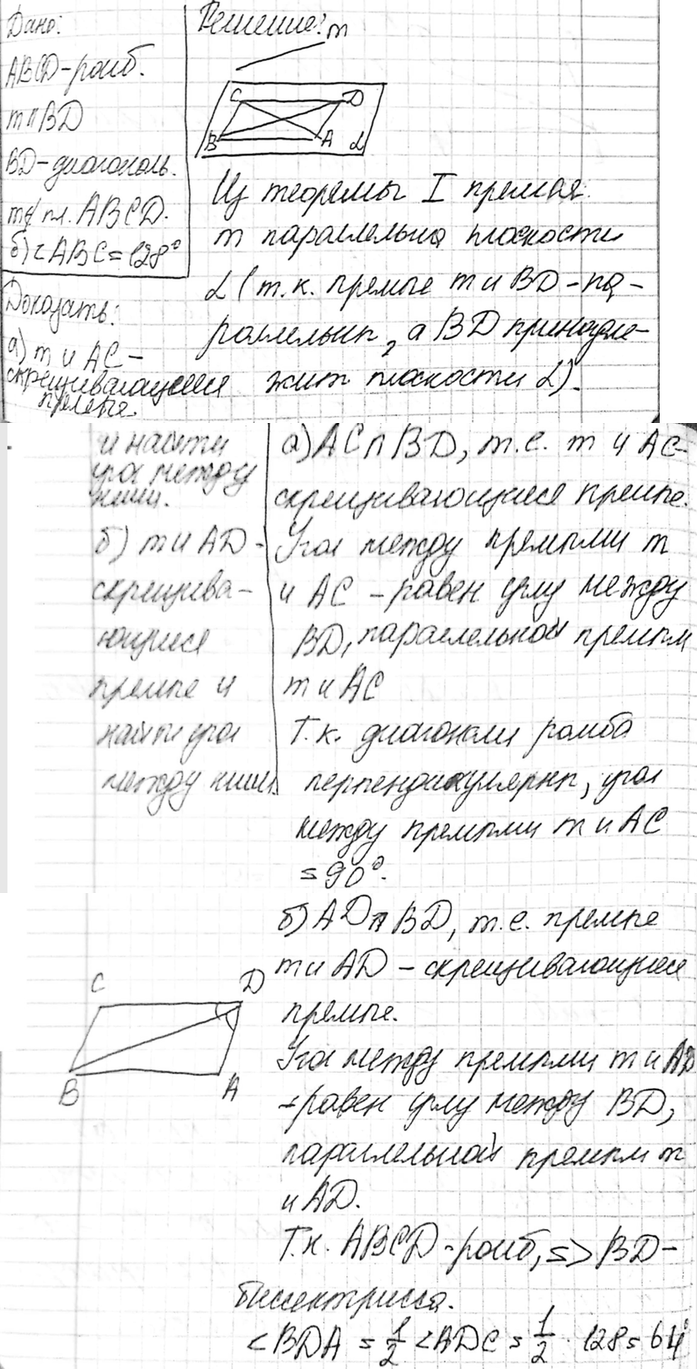 Дано:
ABCD-ромб.
m п BD
BD-диагональ.
m∉ пл. ABCD.
б) <ABC=128°
Доказать:
а) m и AC-
скрещивающиеся
прямые.
Решение:
m
C D
B A α
Из теоремы I прямая
m параллельна плоскости
α (т.к. прямые m и BD-па-
раллельны, а BD принадле-
жит плоскости α).
и найти
угол между
ними.
б) m и AD-
скрещива-
ющиеся
прямые и
найти угол
между ними.
а) AC∩BD, т.е. m и AC-
скрещивающиеся прямые.
Угол между прямыми m
и AC - равен углу между
BD, параллельной прямым
m и AC
Т.к. диагонали ромба
перпендикулярны, угол
между прямыми m и AC
=90°.
C D
B A
б) AD∩BD, т.е. прямые
m и AD - скрещивающиеся
прямые.
Угол между прямыми m и AD
-равен углу между BD,
параллельной прямым m
и AD.
Т.к. ABCD-ромб, => BD-
биссектрисса.
<BDA = 1/2 <ADC = 1/2 · 128 = 64°